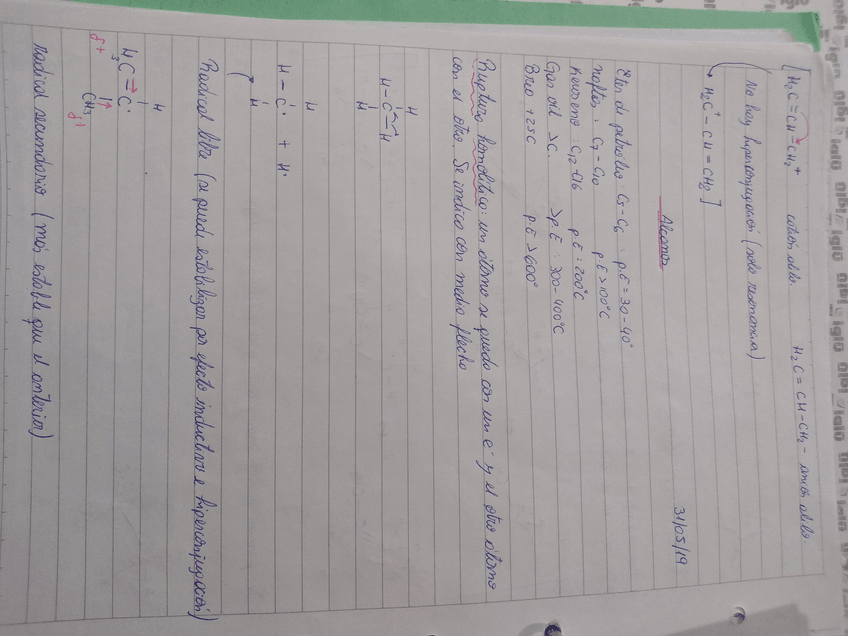 [H₂C = CH – CH₂⁺ catión alilo. H₂C = CH – CH₂ – anión alilo.
(No hay hiperconjugación (solo resonancia)
H₂C⁺ – CH = CH₂]
31/05/19
Alcanos
Éter de petróleo: C5-C6 p.E = 30-40°
naftas: C7-C10 p.E > 100°C
Keroseno C12-C16 p.E: 200°C
Gas oil >C. >p.E: 300-400°C
Brea +25C p.E > 600°
Ruptura homolítica: un átomo se queda con un e⁻ y el otro átomo
con el otro. Se indica con media flecha
H
H – C – H
H
H
H – C· + H·
H
Radical libre (se puede estabilizar por efecto inductivo e hiperconjugación)
H
H₃C → C·
CH₃
δ+ δ+
radical secundario (más estable que el anterior)